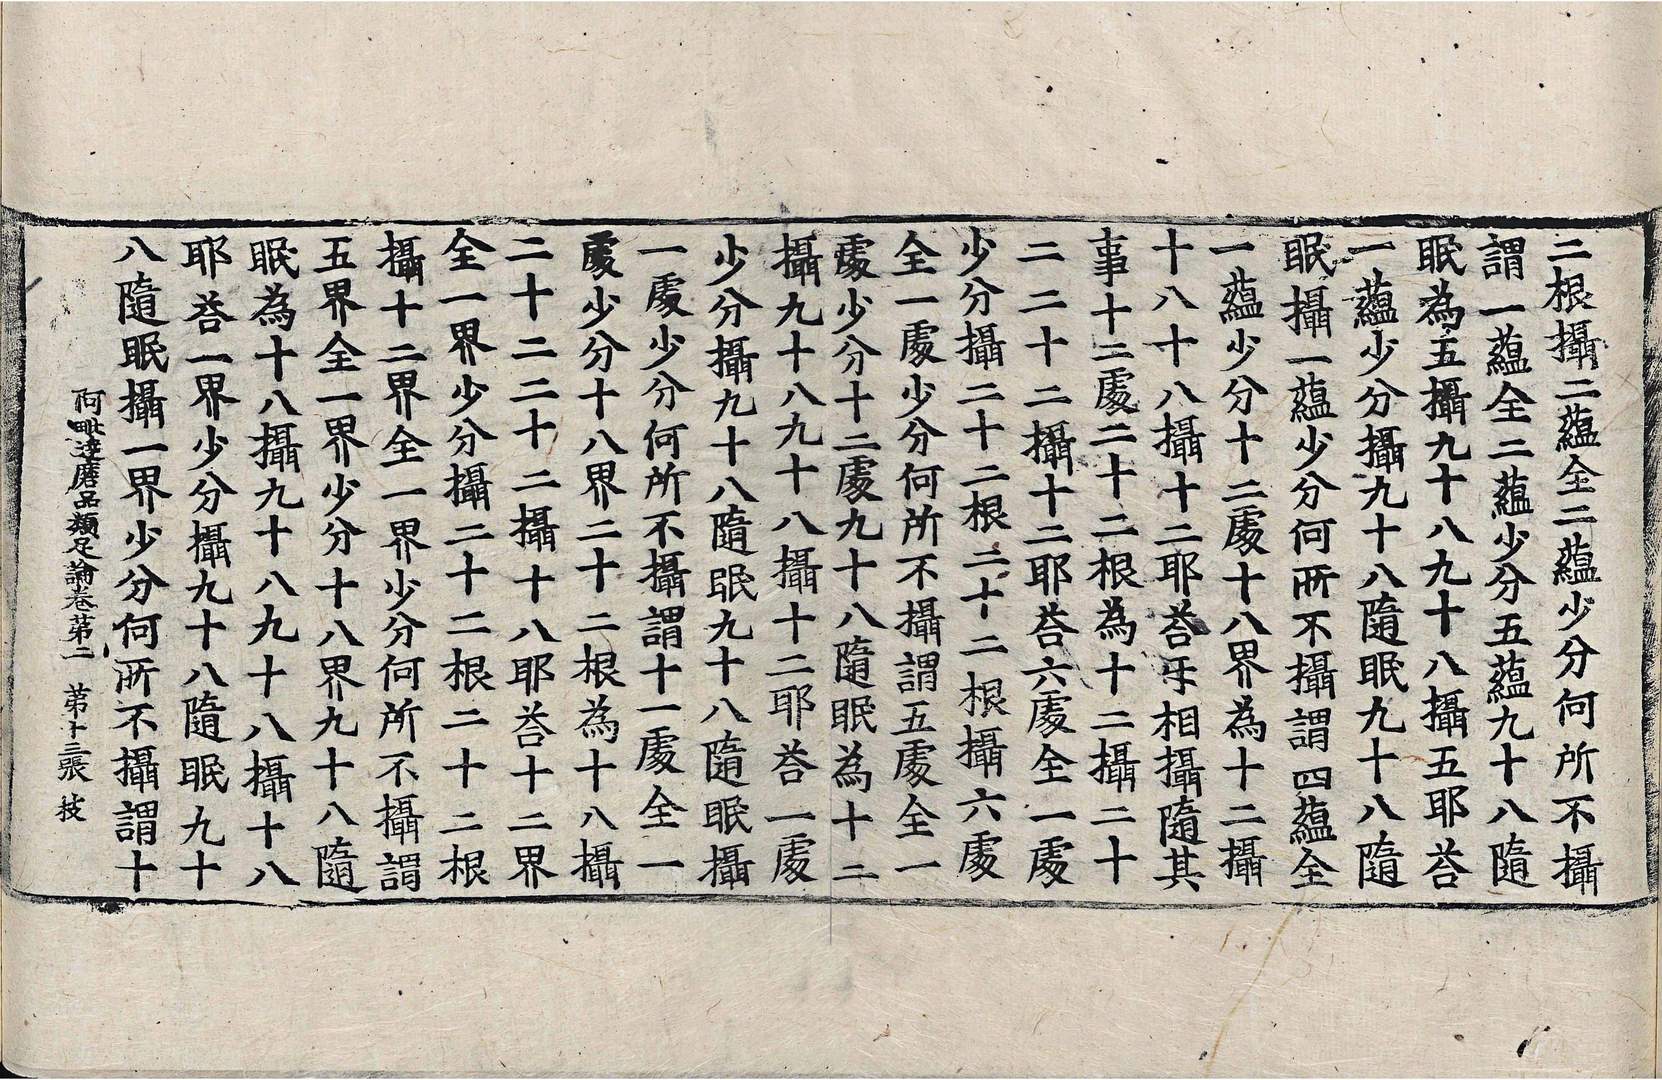 二根攝二蘊全二蘊少分何所不攝
謂一蘊全二蘊少分五蘊九十八隨
眠為五攝九十八九十八攝五耶荅
一蘊少分攝九十八隨眠九十八隨
眠攝一蘊少分何所不攝謂四蘊全
一蘊少分十二處十八界為十二攝
十八十八攝十二耶荅㸦相攝隨其
事十二處二十二根為十二攝二十
二二十二攝十二耶荅六處全一處
少分攝二十二根二十二根攝六處
全一處少分何所不攝謂五處全一
處少分十二處九十八隨眠為十二
攝九十八九十八攝十二耶荅一處
少分攝九十八隨眠九十八隨眠攝
一處少分何所不攝謂十一處全一
處少分十八界二十二根為十八攝
二十二二十二攝十八耶荅十二界
全一界少分攝二十二根二十二根
攝十二界全一界少分何所不攝謂
五界全一界少分十八界九十八隨
眠為十八攝九十八九十八攝十八
耶荅一界少分攝九十八隨眠九十
八隨眠攝一界少分何所不攝謂十
阿毗達磨品類足論卷第二 第十三張 枝